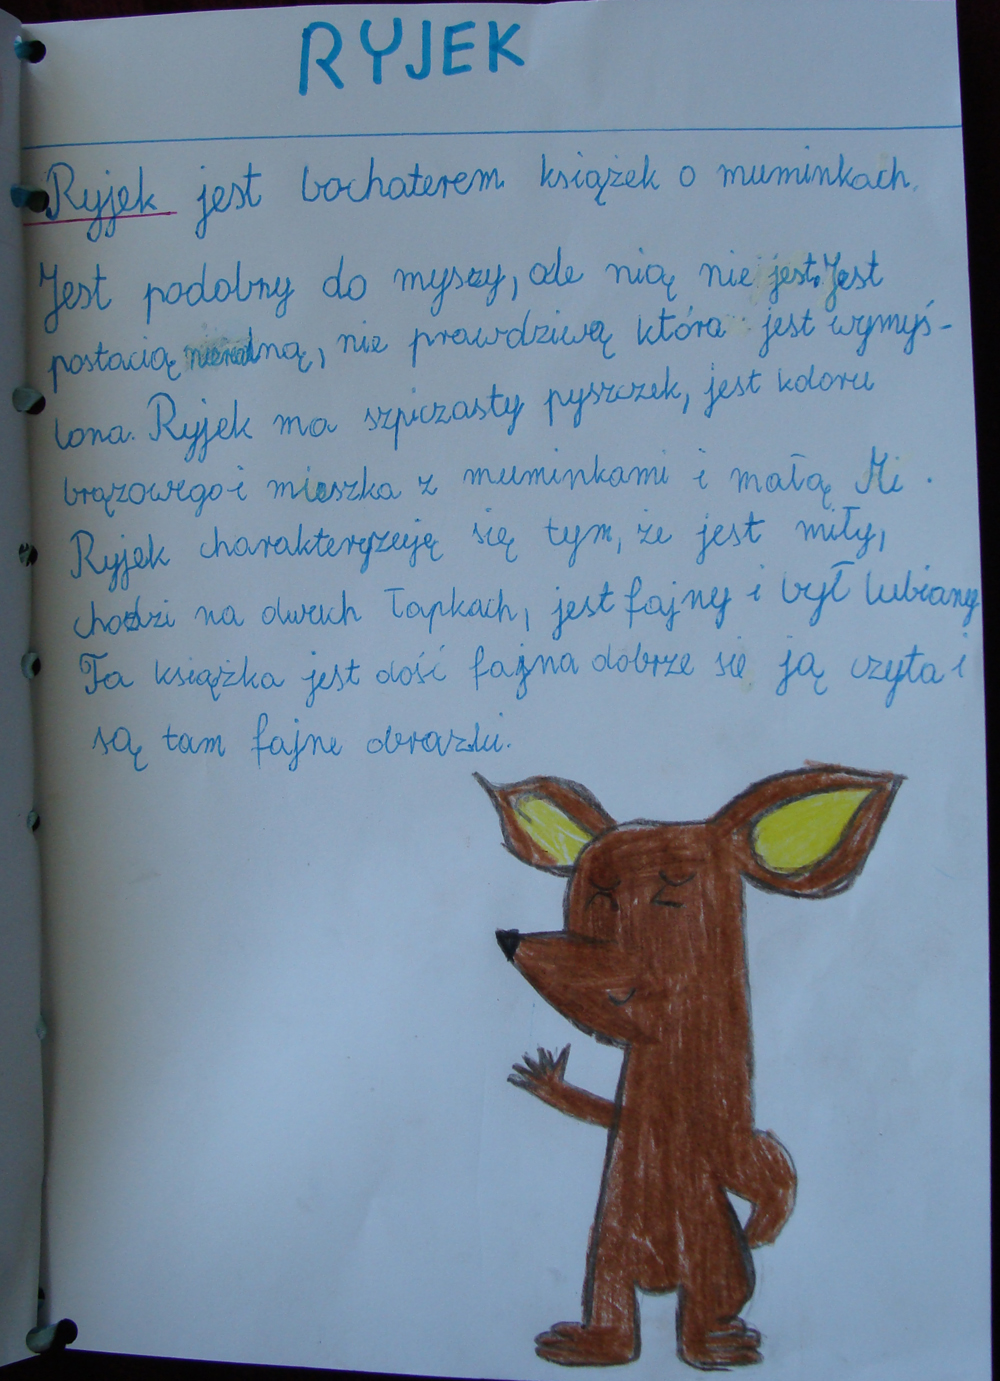 RYJEK
Ryjek jest bochaterem książek o muminkach.
Jest podobny do myszy, ale nią nie jest. Jest
postacią nierealną, nie prawdziwą która jest wymyś-
lona. Ryjek ma szpiczasty pyszczek, jest koloru
brązowego i mieszka z muminkami i małą Mi.
Ryjek charakteryzuję się tym, że jest miły,
chodzi na dwuch łapkach, jest fajny i był lubiany
Ta książka jest dość fajna dobrze się ją czyta i
są tam fajne obrazki.